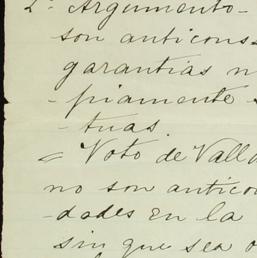 2º Argumento-
son anticons-
garantias n
-piamente s
-tuas.
= Voto de Valla
no son antico
-dades en la
sin que sea o